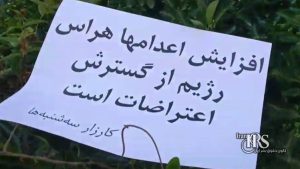 افزایش اعدامها هراس
رژیم از گسترش
اعتراضات است
کارزار سه‌شنبه‌ها